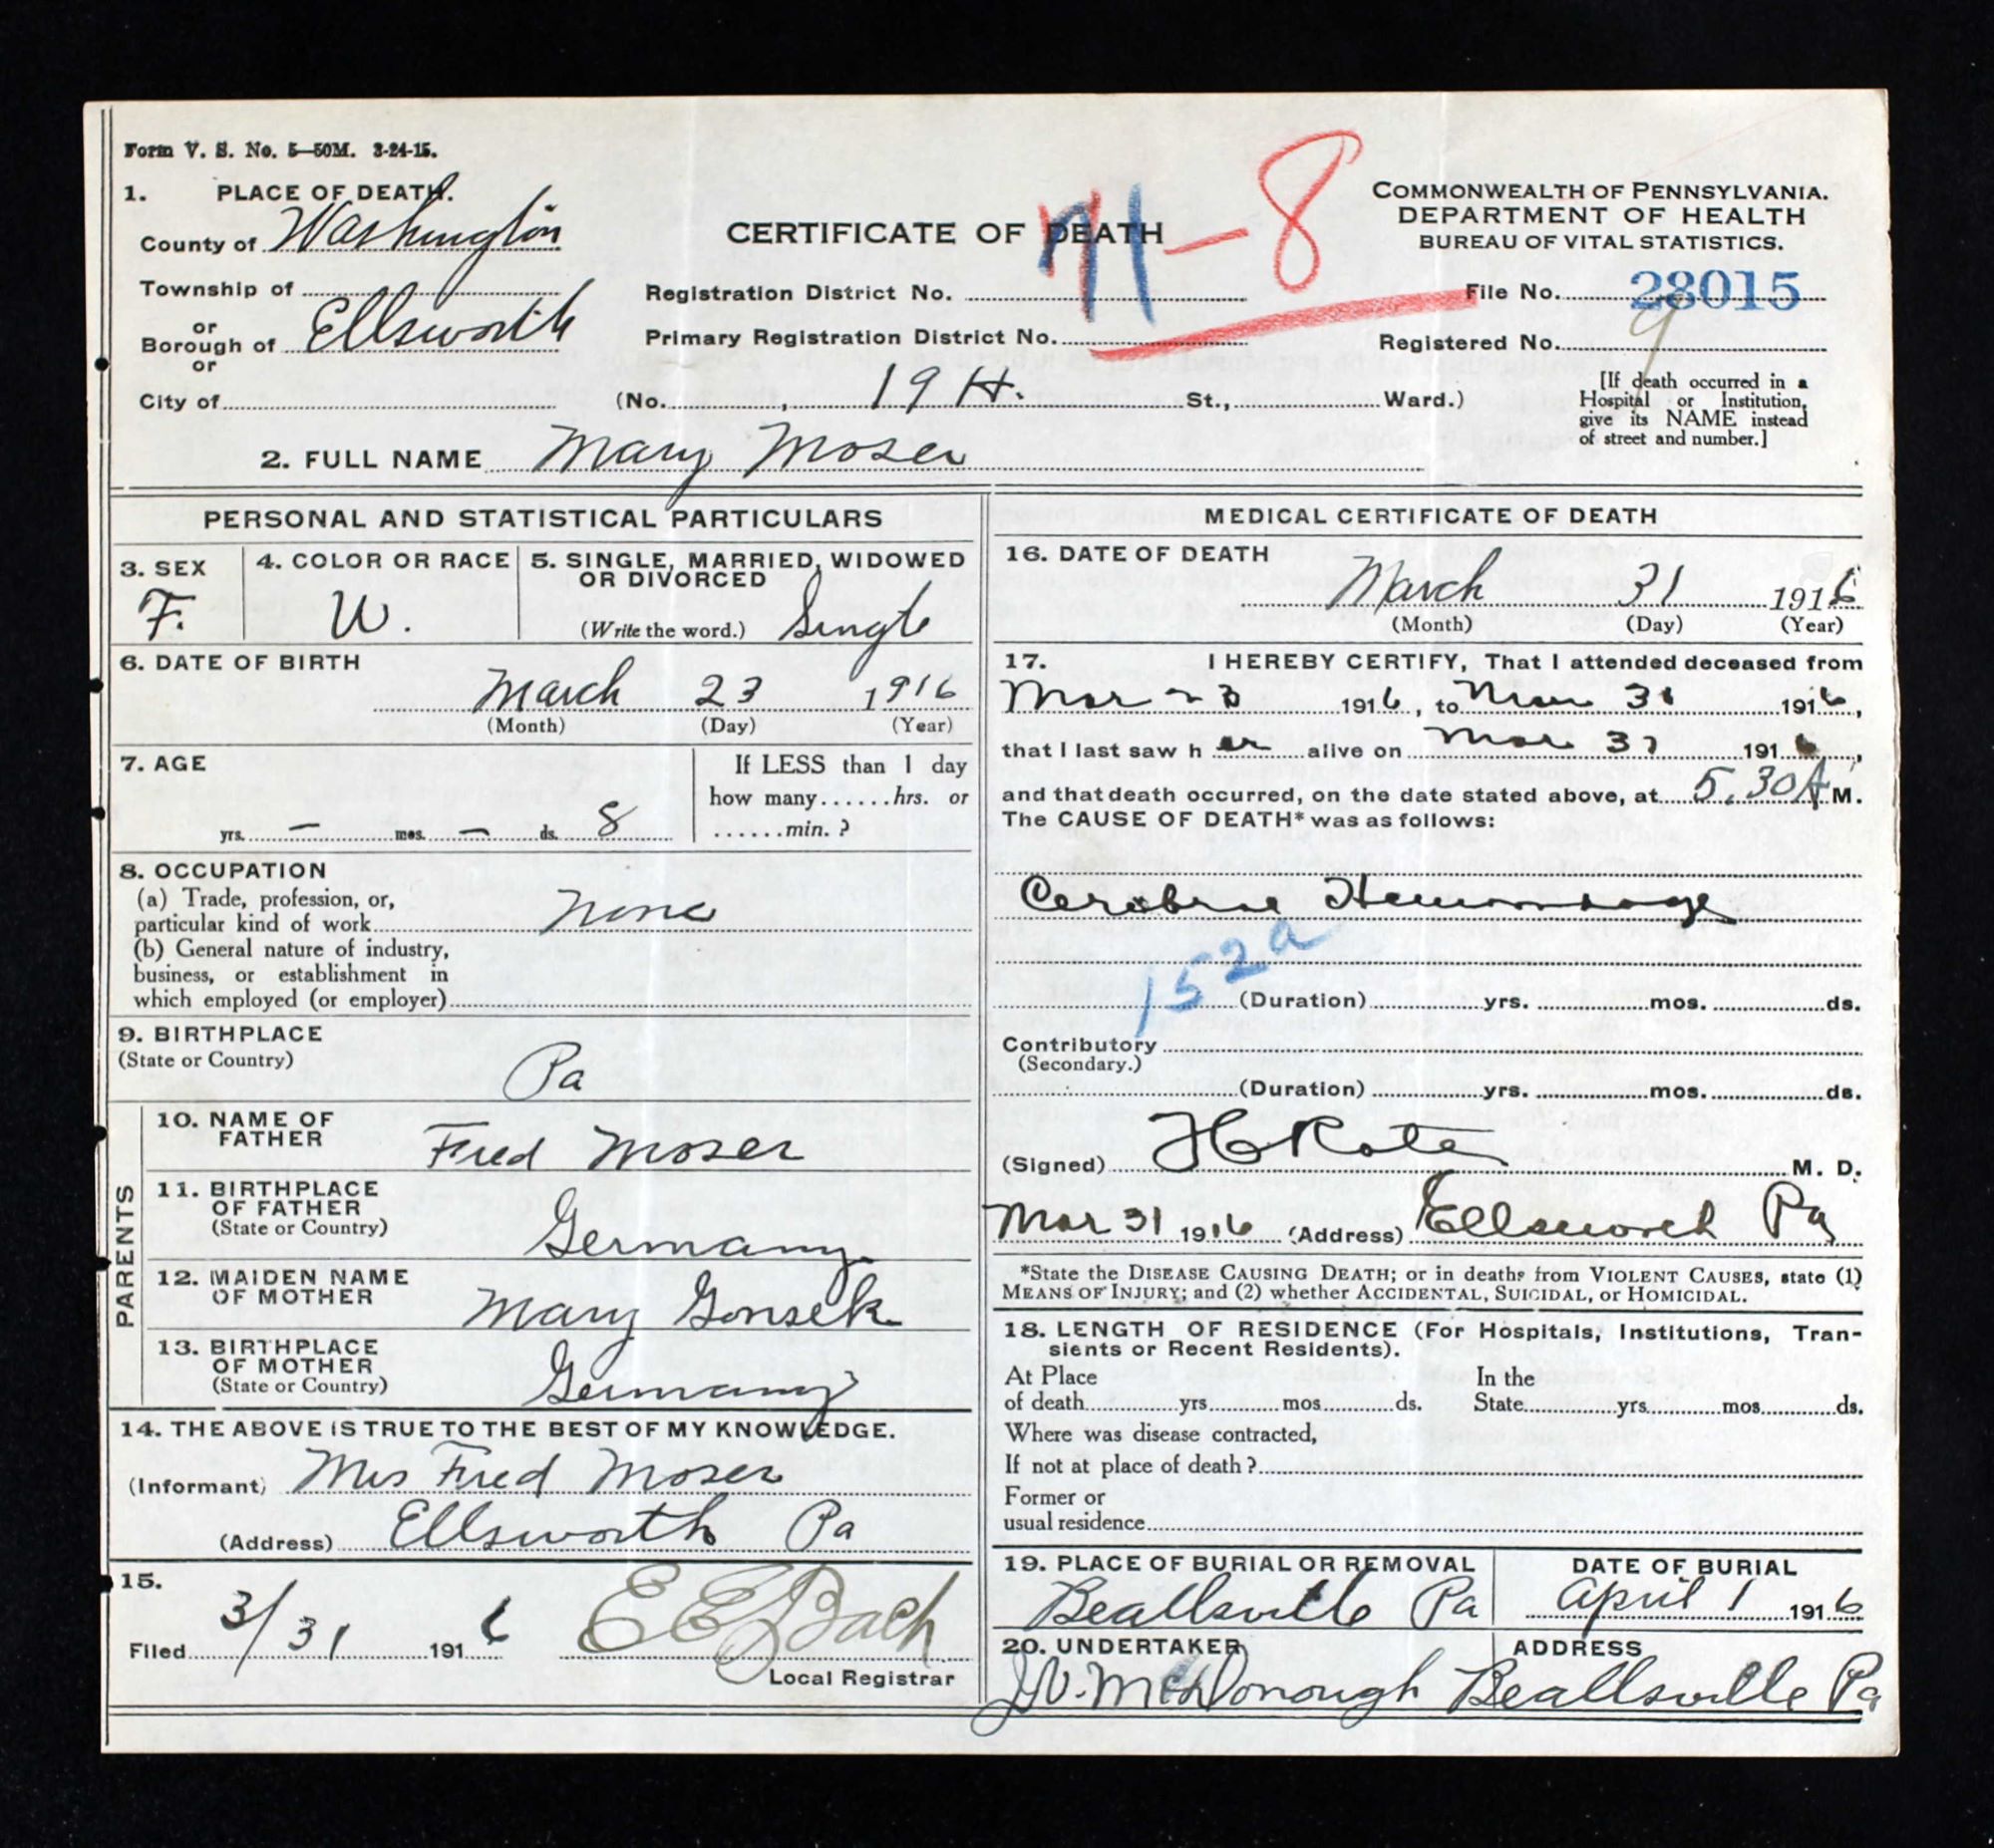 Form V. S. No. 5—50M. 3-24-15.
1. PLACE OF DEATH.
County of Washington
Township of
or
Borough of Ellsworth
or
City of
CERTIFICATE OF DEATH
71-8
Registration District No.
Primary Registration District No.
(No. , 19 H. St., Ward.)
COMMONWEALTH OF PENNSYLVANIA.
DEPARTMENT OF HEALTH
BUREAU OF VITAL STATISTICS.
File No. 28015
Registered No. 9
[If death occurred in a
Hospital or Institution,
give its NAME instead
of street and number.]
2. FULL NAME Mary Moser
PERSONAL AND STATISTICAL PARTICULARS
3. SEX
F.
4. COLOR OR RACE
W.
5. SINGLE, MARRIED, WIDOWED
OR DIVORCED
(Write the word.) Single
6. DATE OF BIRTH
March 23 1916
(Month) (Day) (Year)
7. AGE
yrs. — mos. — ds. 8
If LESS than 1 day
how many......hrs. or
......min. ?
8. OCCUPATION
(a) Trade, profession, or,
particular kind of work None
(b) General nature of industry,
business, or establishment in
which employed (or employer)
9. BIRTHPLACE
(State or Country)
Pa
PARENTS
10. NAME OF
FATHER
Fred Moser
11. BIRTHPLACE
OF FATHER
(State or Country)
Germany
12. MAIDEN NAME
OF MOTHER
Mary Gonsek
13. BIRTHPLACE
OF MOTHER
(State or Country)
Germany
14. THE ABOVE IS TRUE TO THE BEST OF MY KNOWLEDGE.
(Informant) Mrs Fred Moser
(Address) Ellsworth Pa
15.
Filed 3/31 1916 E E Bach
Local Registrar
MEDICAL CERTIFICATE OF DEATH
16. DATE OF DEATH
March 31 1916
(Month) (Day) (Year)
17. I HEREBY CERTIFY, That I attended deceased from
Mar 23 1916, to Mar 31 1916,
that I last saw her alive on Mar 31 1916,
and that death occurred, on the date stated above, at 5.30 A M.
The CAUSE OF DEATH* was as follows:
Cerebral Hemorrhage
152a
(Duration) yrs. mos. ds.
Contributory
(Secondary.)
(Duration) yrs. mos. ds.
(Signed) M. D.
Mar 31 1916 (Address) Ellsworth Pa
*State the DISEASE CAUSING DEATH; or in deaths from VIOLENT CAUSES, state (1)
MEANS OF INJURY; and (2) whether ACCIDENTAL, SUICIDAL, or HOMICIDAL.
18. LENGTH OF RESIDENCE (For Hospitals, Institutions, Tran-
sients or Recent Residents).
At Place In the
of death yrs mos ds. State yrs mos ds.
Where was disease contracted,
If not at place of death ?
Former or
usual residence
19. PLACE OF BURIAL OR REMOVAL
Beallsville Pa
DATE OF BURIAL
April 1 1916
20. UNDERTAKER ADDRESS
McDonough Beallsville Pa